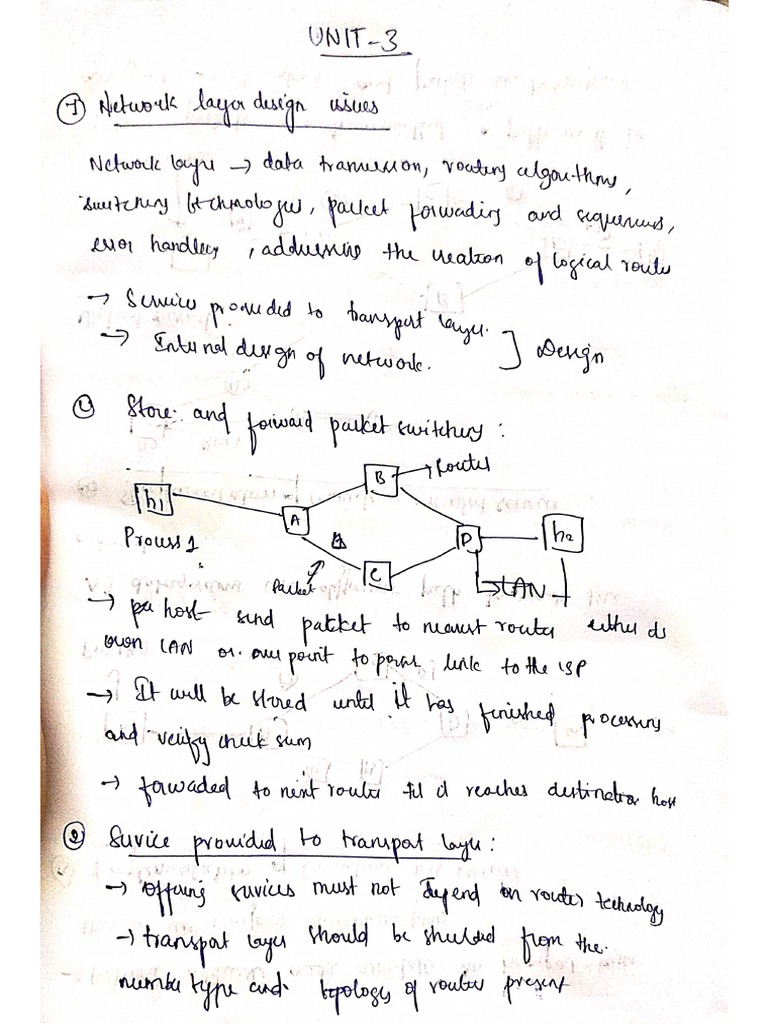 UNIT-3
① Network layer design issues
Network layer → data transmission, routing algorithms,
switching technologies, packet forwarding and sequences,
error handling, addressing the creation of logical routes
→ Service provided to transport layer.
→ Internal design of network. ] Design
① Store and forward packet switching:
B → Router
h1
A
D
h2
Process 1
C
Packet
LAN
→ host send packet to nearest router either its
own LAN or over point to point link to the ISP
→ It will be stored until it has finished processing
and verify check sum
→ forwaded to next router til it reaches destination host
② Service provided to transport layer:
→ Offering services must not depend on router technology
→ transport layer should be shielded from the
number type and topology of router present